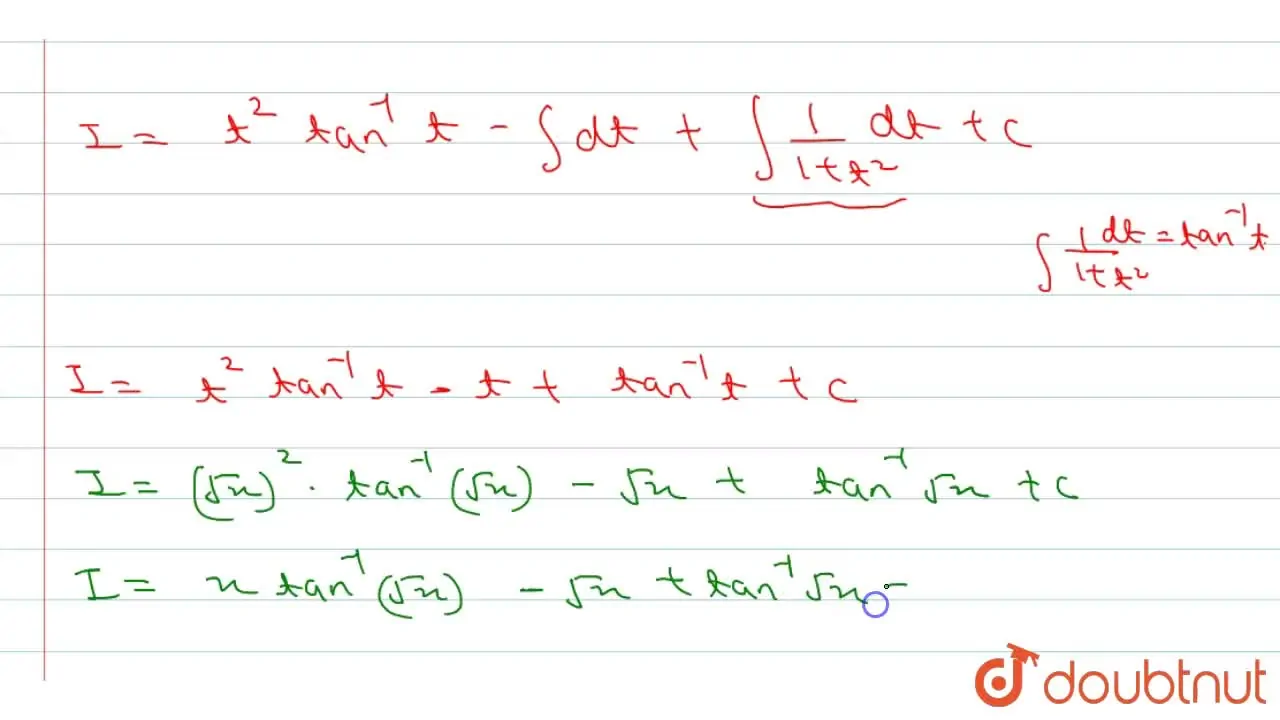 I = t² tan⁻¹ t - ∫ dt + ∫ 1/(1+t²) dt + c
∫ 1/(1+t²) dt = tan⁻¹ t
I = t² tan⁻¹ t - t + tan⁻¹ t + c
I = (√x)² · tan⁻¹ (√x) - √x + tan⁻¹ √x + c
I = x tan⁻¹ (√x) - √x + tan⁻¹ √x
doubtnut